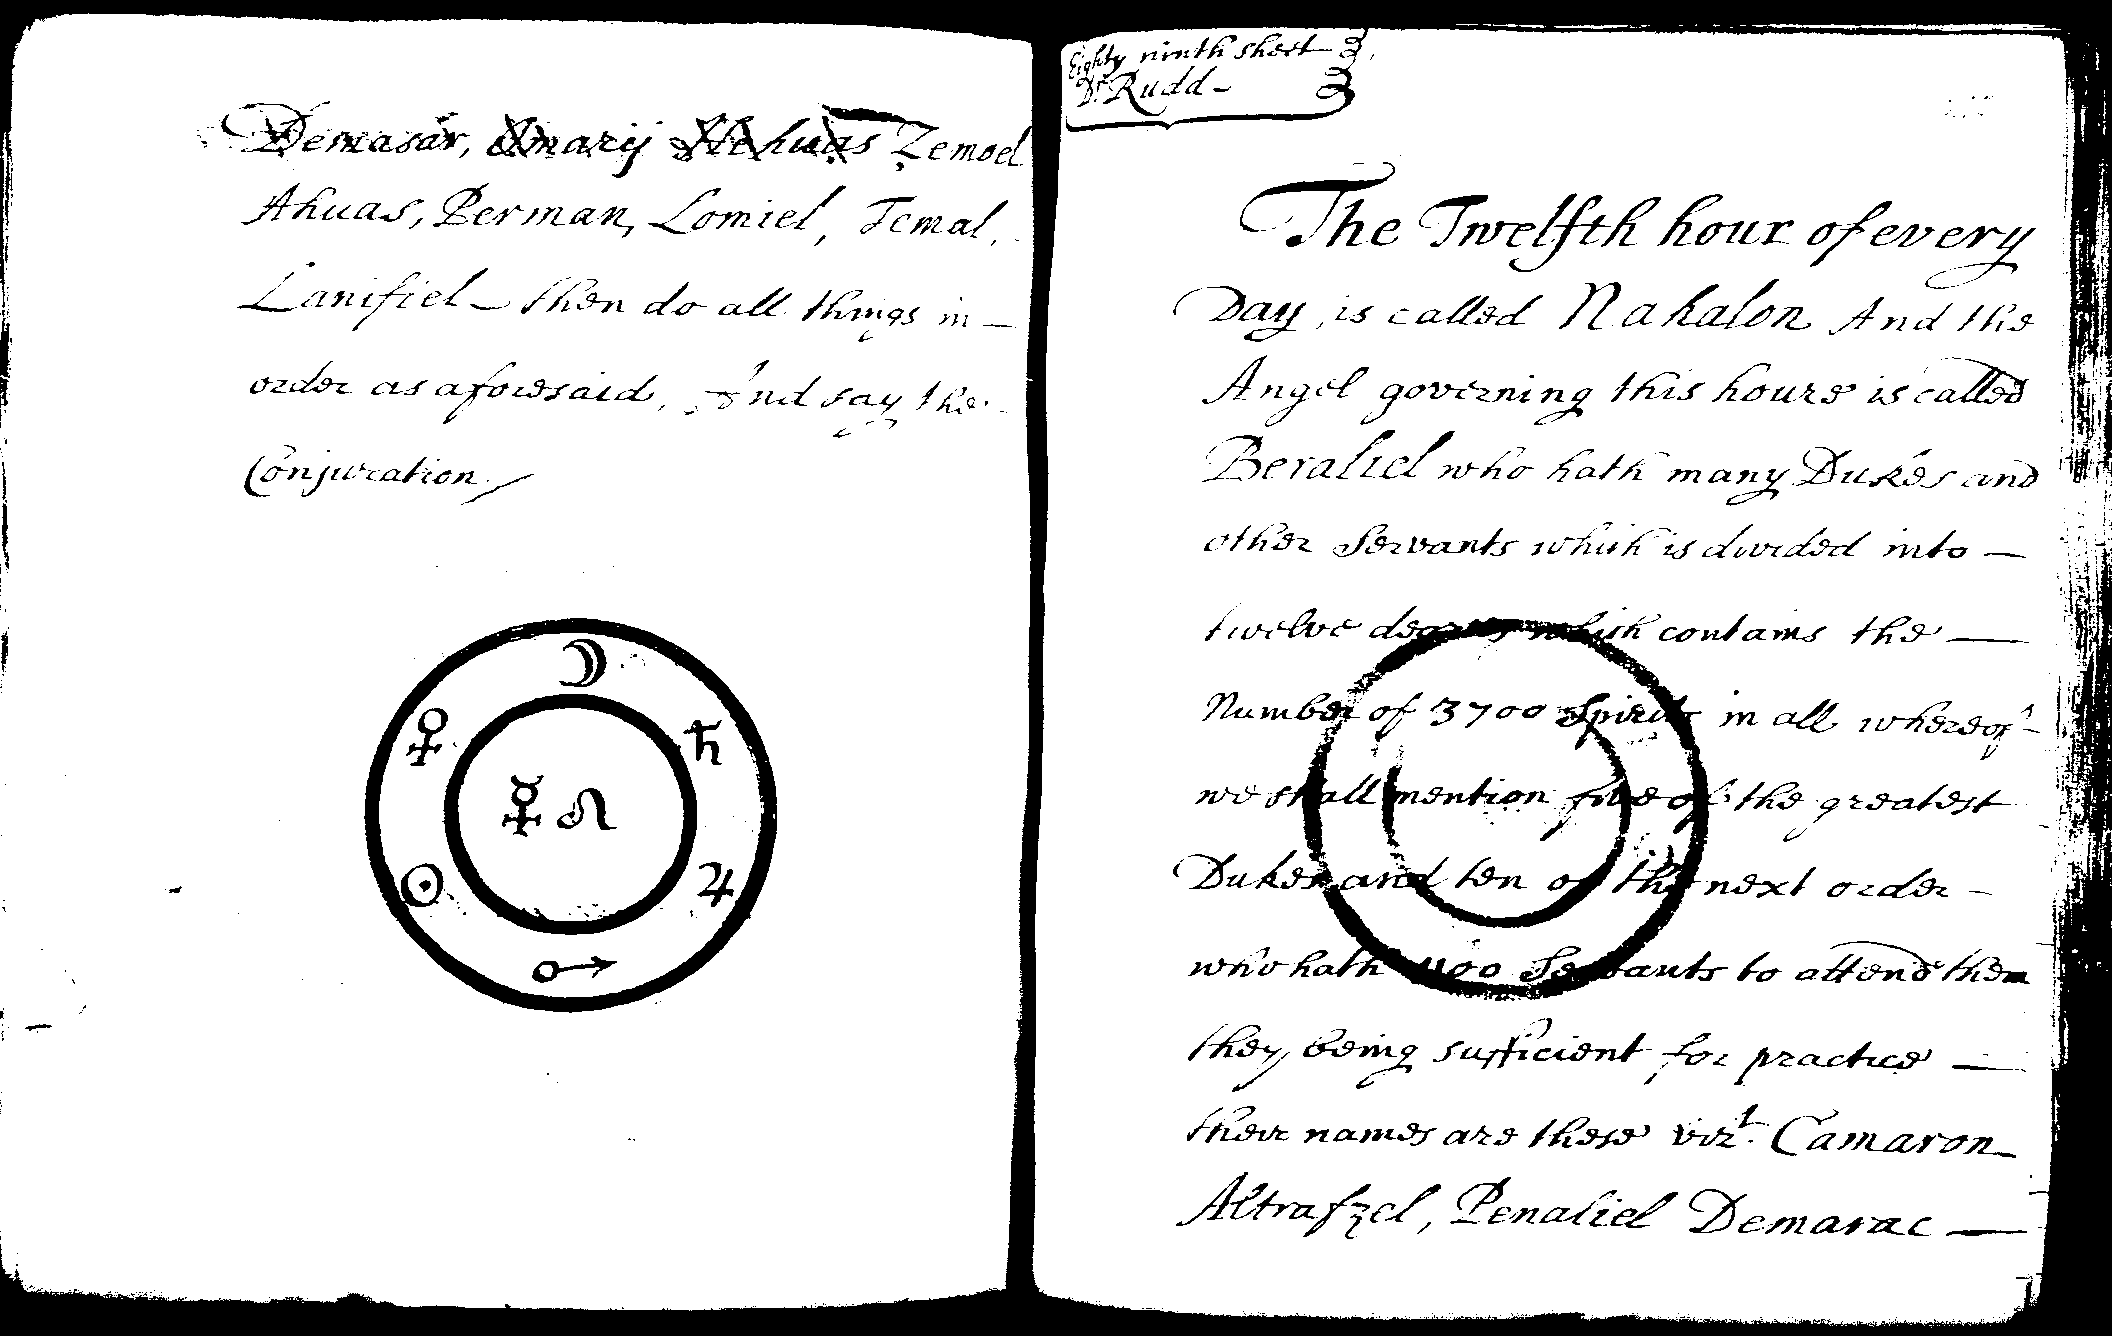 Demasar, Emarij Hehuas Zemoel
Ahuas, Perman, Lomiel, Temal,
Lanifiel – then do all things in –
order as aforesaid, And say the
Conjuration
☽
♀ ♄
☿ ♌
☉ ♃
♂
Eighty ninth sheet
Dr Rudd –
The Twelfth hour of every
Day, is called Nahalon And the
Angel governing this houre is called
Beraliel who hath many Dukes and
other Servants which is divided into –
twelve degrees which contains the –
Number of 3700 Spirits in all whereof –
we shall mention five of the greatest
Dukes and ten of the next order –
who hath 1100 Servants to attend them
they being sufficient for practice –
their names are these vizt. Camaron
Altrafzel, Penaliel Demarac –